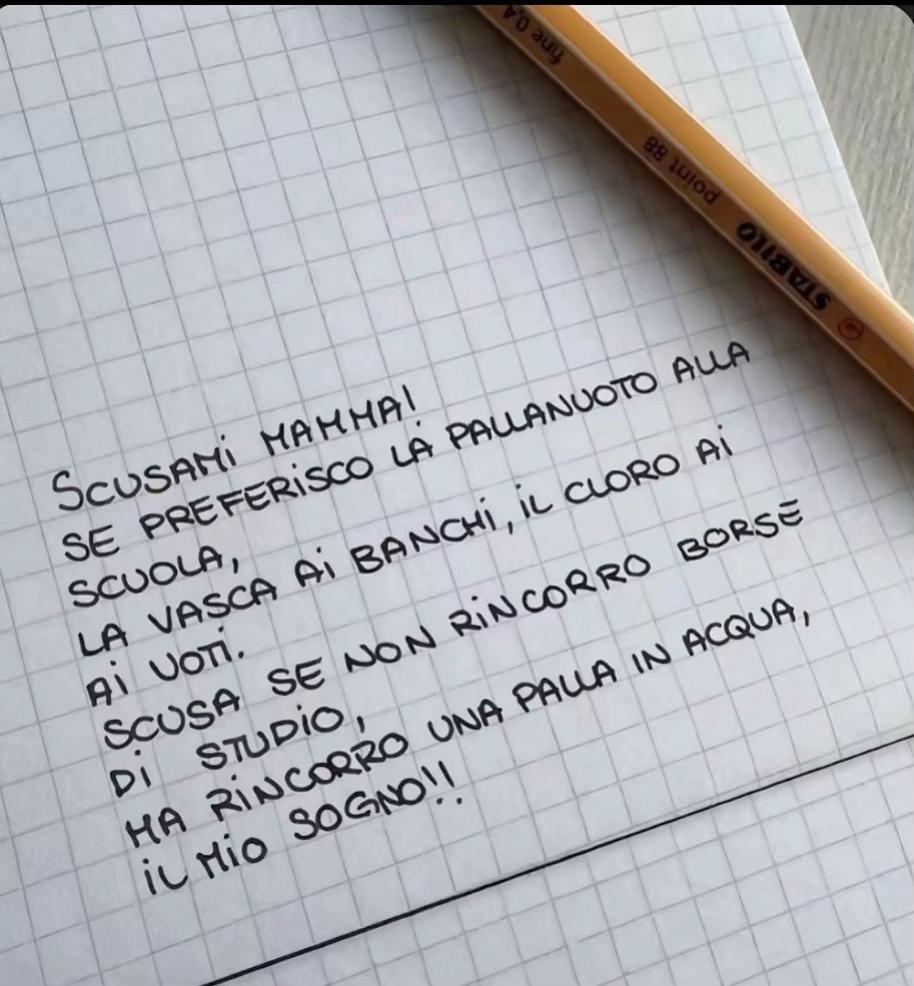 fine 0,4
point 88
STABILO
SCUSAMi MAMMA!
SE PREFERiSCO LA PALLANUOTO ALLA
SCUOLA,
LA VASCA Ai BANCHi, iL CLORO Ai
Ai VOTi.
SCUSA SE NON RiNCORRO BORSE
Di STUDiO,
MA RiNCORRO UNA PALLA IN ACQUA,
iL MiO SOGNO!!